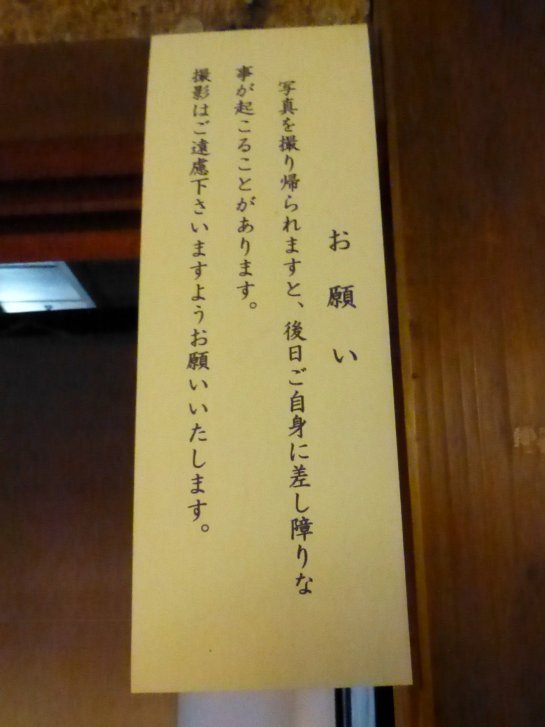 お願い
写真を撮り帰られますと、後日ご自身に差し障りな
事が起こることがあります。
撮影はご遠慮下さいますようお願いいたします。